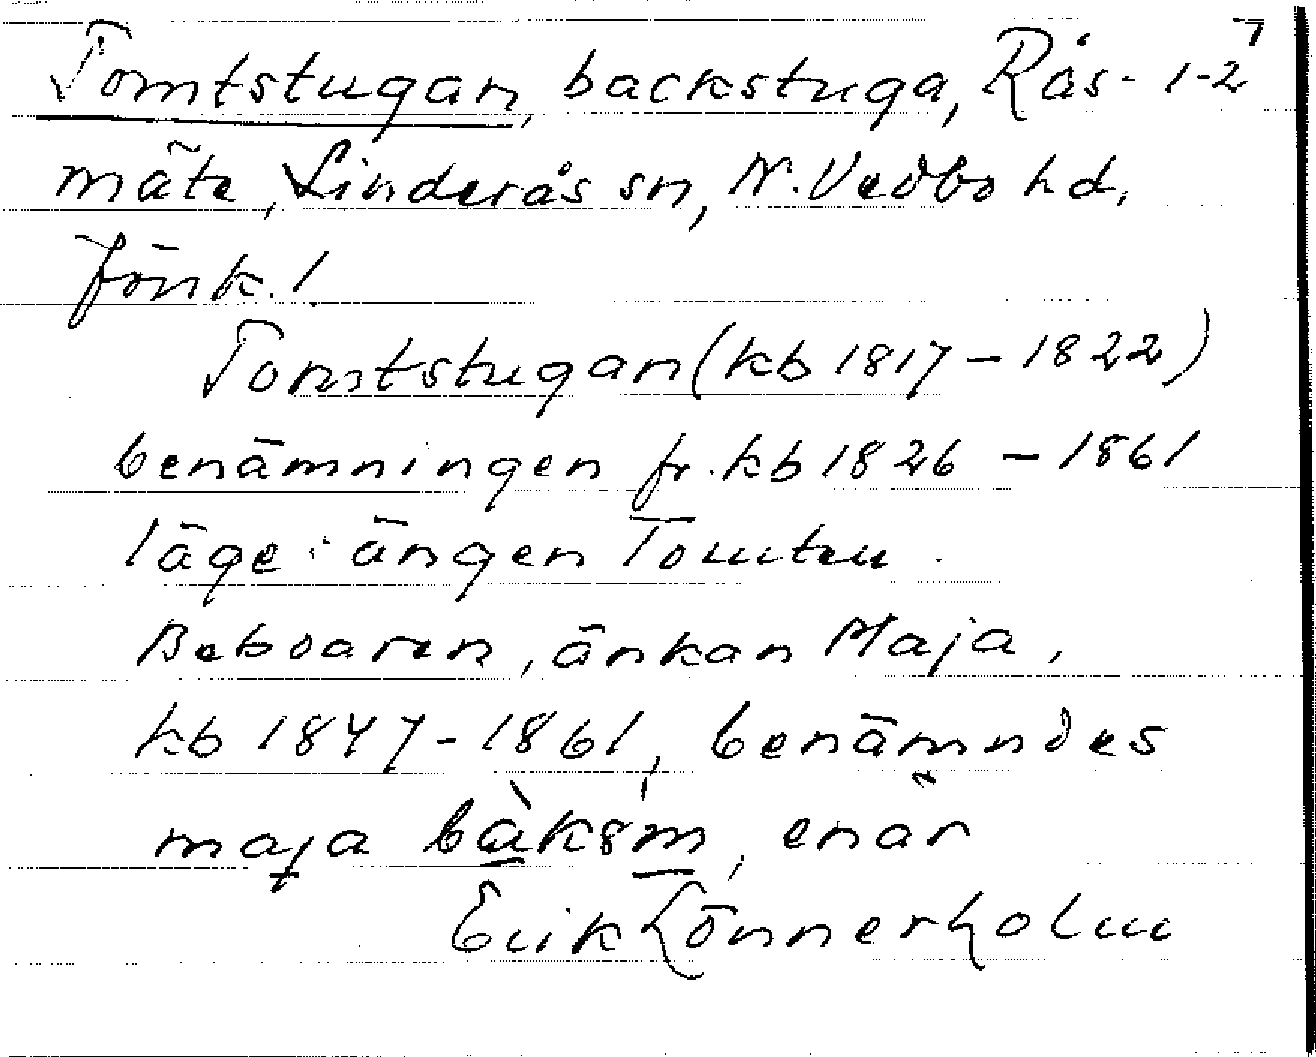 Tomtstugan, backstuga, Rås- 1-2
mäte, Linderås sn, N. Vedbo hd,
Jönk. l.
Tomtstugan (kb 1817-1822)
benämningen fr. kb 1826-1861
läge: ängen Tomten.
Beboaren, änkan Maja,
kb 1847-1861, benämndes
maja enär
Erik Lönnerholm